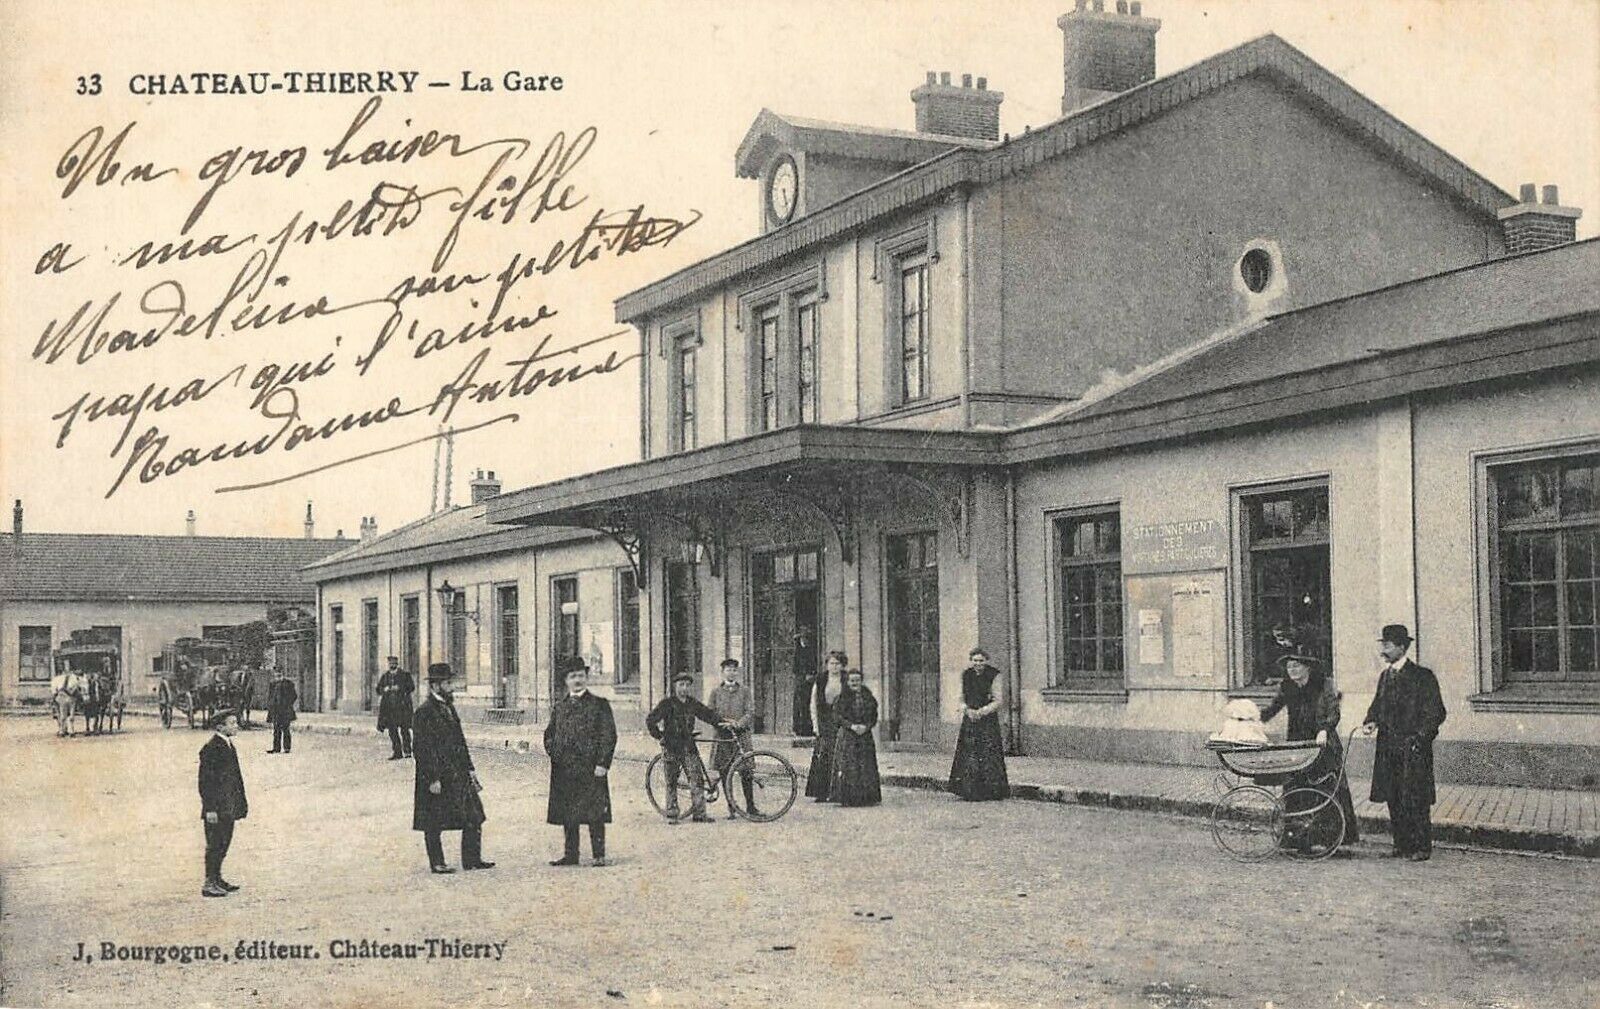 33 CHATEAU-THIERRY – La Gare
Un gros baiser
a ma petite fille
Madeleine son petit
papa qui l'aime
Antoine
STATIONNEMENT
DES
VOITURES PARTICULIERES
J. Bourgogne, éditeur. Château-Thierry